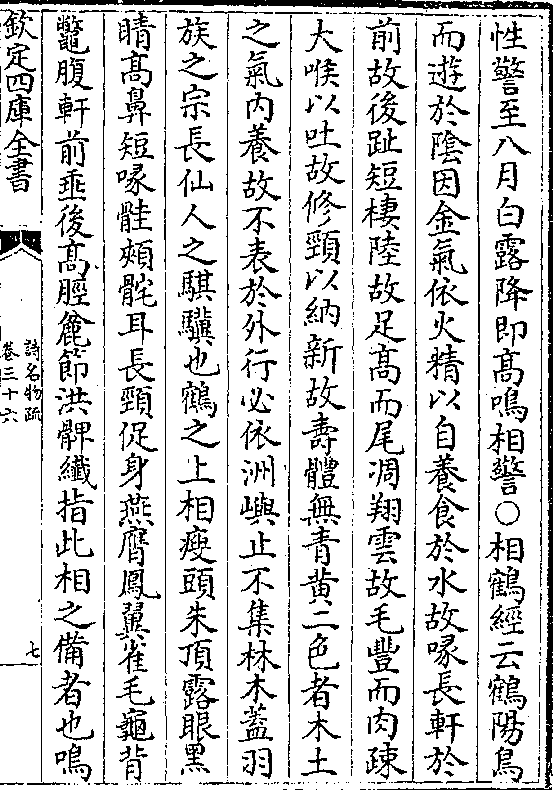 性警至八月白露降即髙鳴相警○相鶴經云鶴陽鳥
而遊於陰因金氣依火精以自養食於水故喙長軒於
前故後趾短棲陸故足髙而尾凋翔雲故毛豐而肉疎
大喉以吐故修頸以納新故壽體無青黄二色者木土
之氣内養故不表於外行必依洲嶼止不集林木葢羽
族之宗長仙人之騏驥也鶴之上相瘦頭朱頂露眼黒
睛髙鼻短喙䯓頰𩨗耳長頸促身燕膺鳳翼雀毛龜背
鼈腹軒前垂後髙脛麄節洪髀纎指此相之備者也鳴
欽定四庫全書
詩名物疏
卷三十六
七